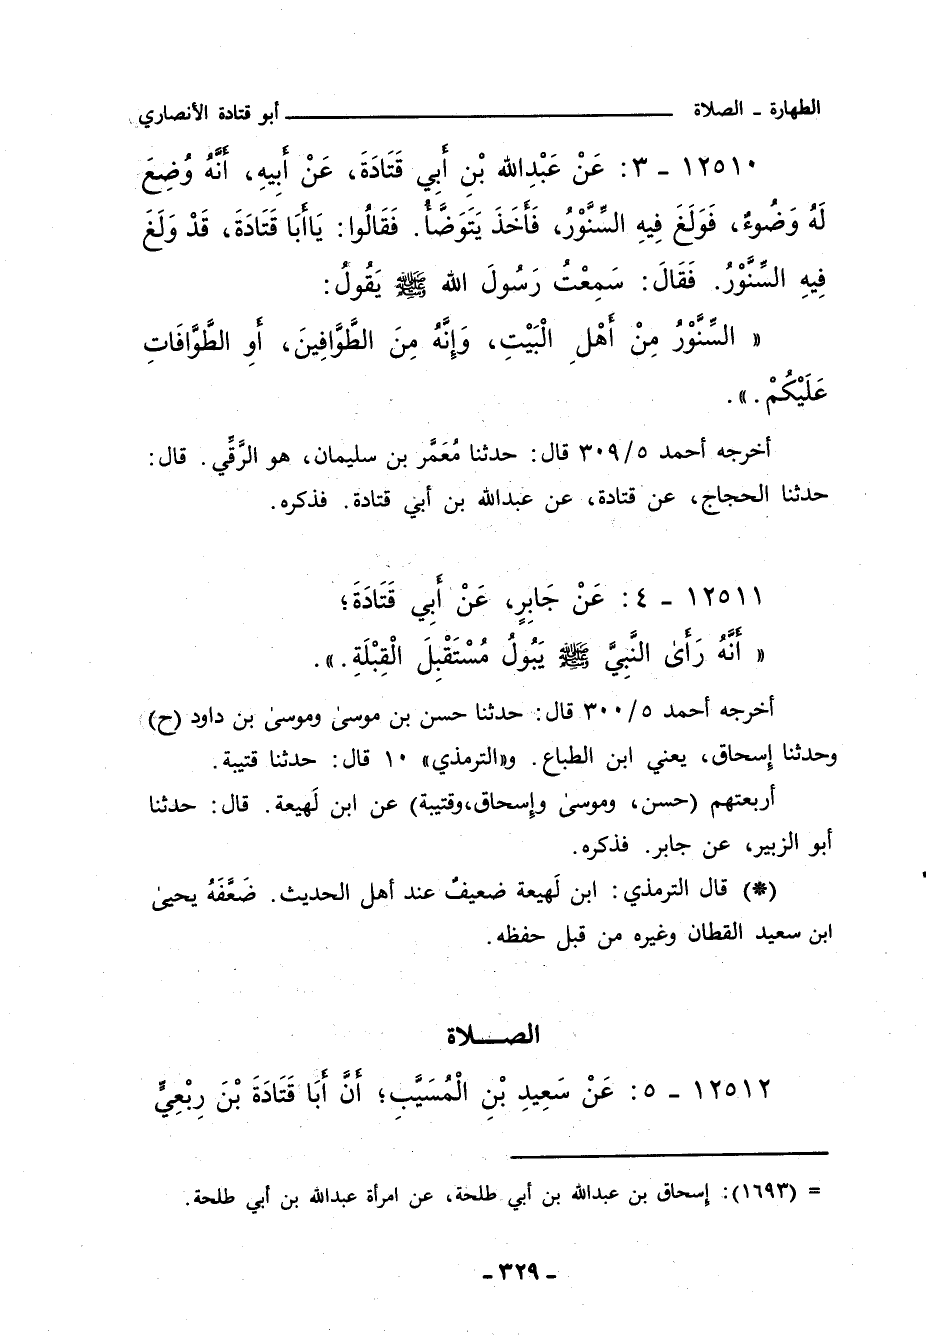 الطهارة ـ الصلاة ـــــــــ أبو قتادة الأنصاري
١٢٥١٠ ـ ٣: عَنْ عَبْدِالله بْنِ أَبِي قَتَادَةَ، عَنْ أَبِيهِ، أَنَّهُ وُضِعَ
لَهُ وَضُوءٌ، فَوَلَغَ فِيهِ السِّنَّوْرُ، فَأَخَذَ يَتَوَضَّأُ. فَقَالُوا: يَاأَبَا قَتَادَةَ، قَدْ وَلَغَ
فِيهِ السِّنَّوْرُ. فَقَالَ: سَمِعْتُ رَسُولَ الله ﷺ يَقُولُ:
« السِّنَّوْرُ مِنْ أَهْلِ الْبَيْتِ، وَإِنَّهُ مِنَ الطَّوَّافِينَ، أَوِ الطَّوَّافَاتِ
عَلَيْكُمْ.».
أخرجه أحمد ٣٠٩/٥ قال: حدثنا مُعَمَّر بن سليمان، هو الرَّقِّي. قال:
حدثنا الحجاج، عن قتادة، عن عبدالله بن أبي قتادة. فذكره.
١٢٥١١ ـ ٤: عَنْ جَابِرٍ، عَنْ أَبِي قَتَادَةَ؛
« أَنَّهُ رَأَىٰ النَّبِيَّ ﷺ يَبُولُ مُسْتَقْبِلَ الْقِبْلَةِ.».
أخرجه أحمد ٣٠٠/٥ قال: حدثنا حسن بن موسىٰ وموسىٰ بن داود (ح)
وحدثنا إسحاق، يعني ابن الطباع. و«الترمذي» ١٠ قال: حدثنا قتيبة.
أربعتهم (حسن، وموسىٰ وإسحاق،وقتيبة) عن ابن لَهيعة. قال: حدثنا
أبو الزبير، عن جابر. فذكره.
(*) قال الترمذي: ابن لَهيعة ضعيفٌ عند أهل الحديث. ضَعَّفَهُ يحيىٰ
ابن سعيد القطان وغيره من قبل حفظه.
الصـــلاة
١٢٥١٢ ـ ٥: عَنْ سَعِيدِ بْنِ الْمُسَيَّبِ؛ أَنَّ أَبَا قَتَادَةَ بْنَ رِبْعِيٍّ
= (١٦٩٣): إسحاق بن عبدالله بن أبي طلحة، عن امرأة عبدالله بن أبي طلحة.
- ٣٢٩ -